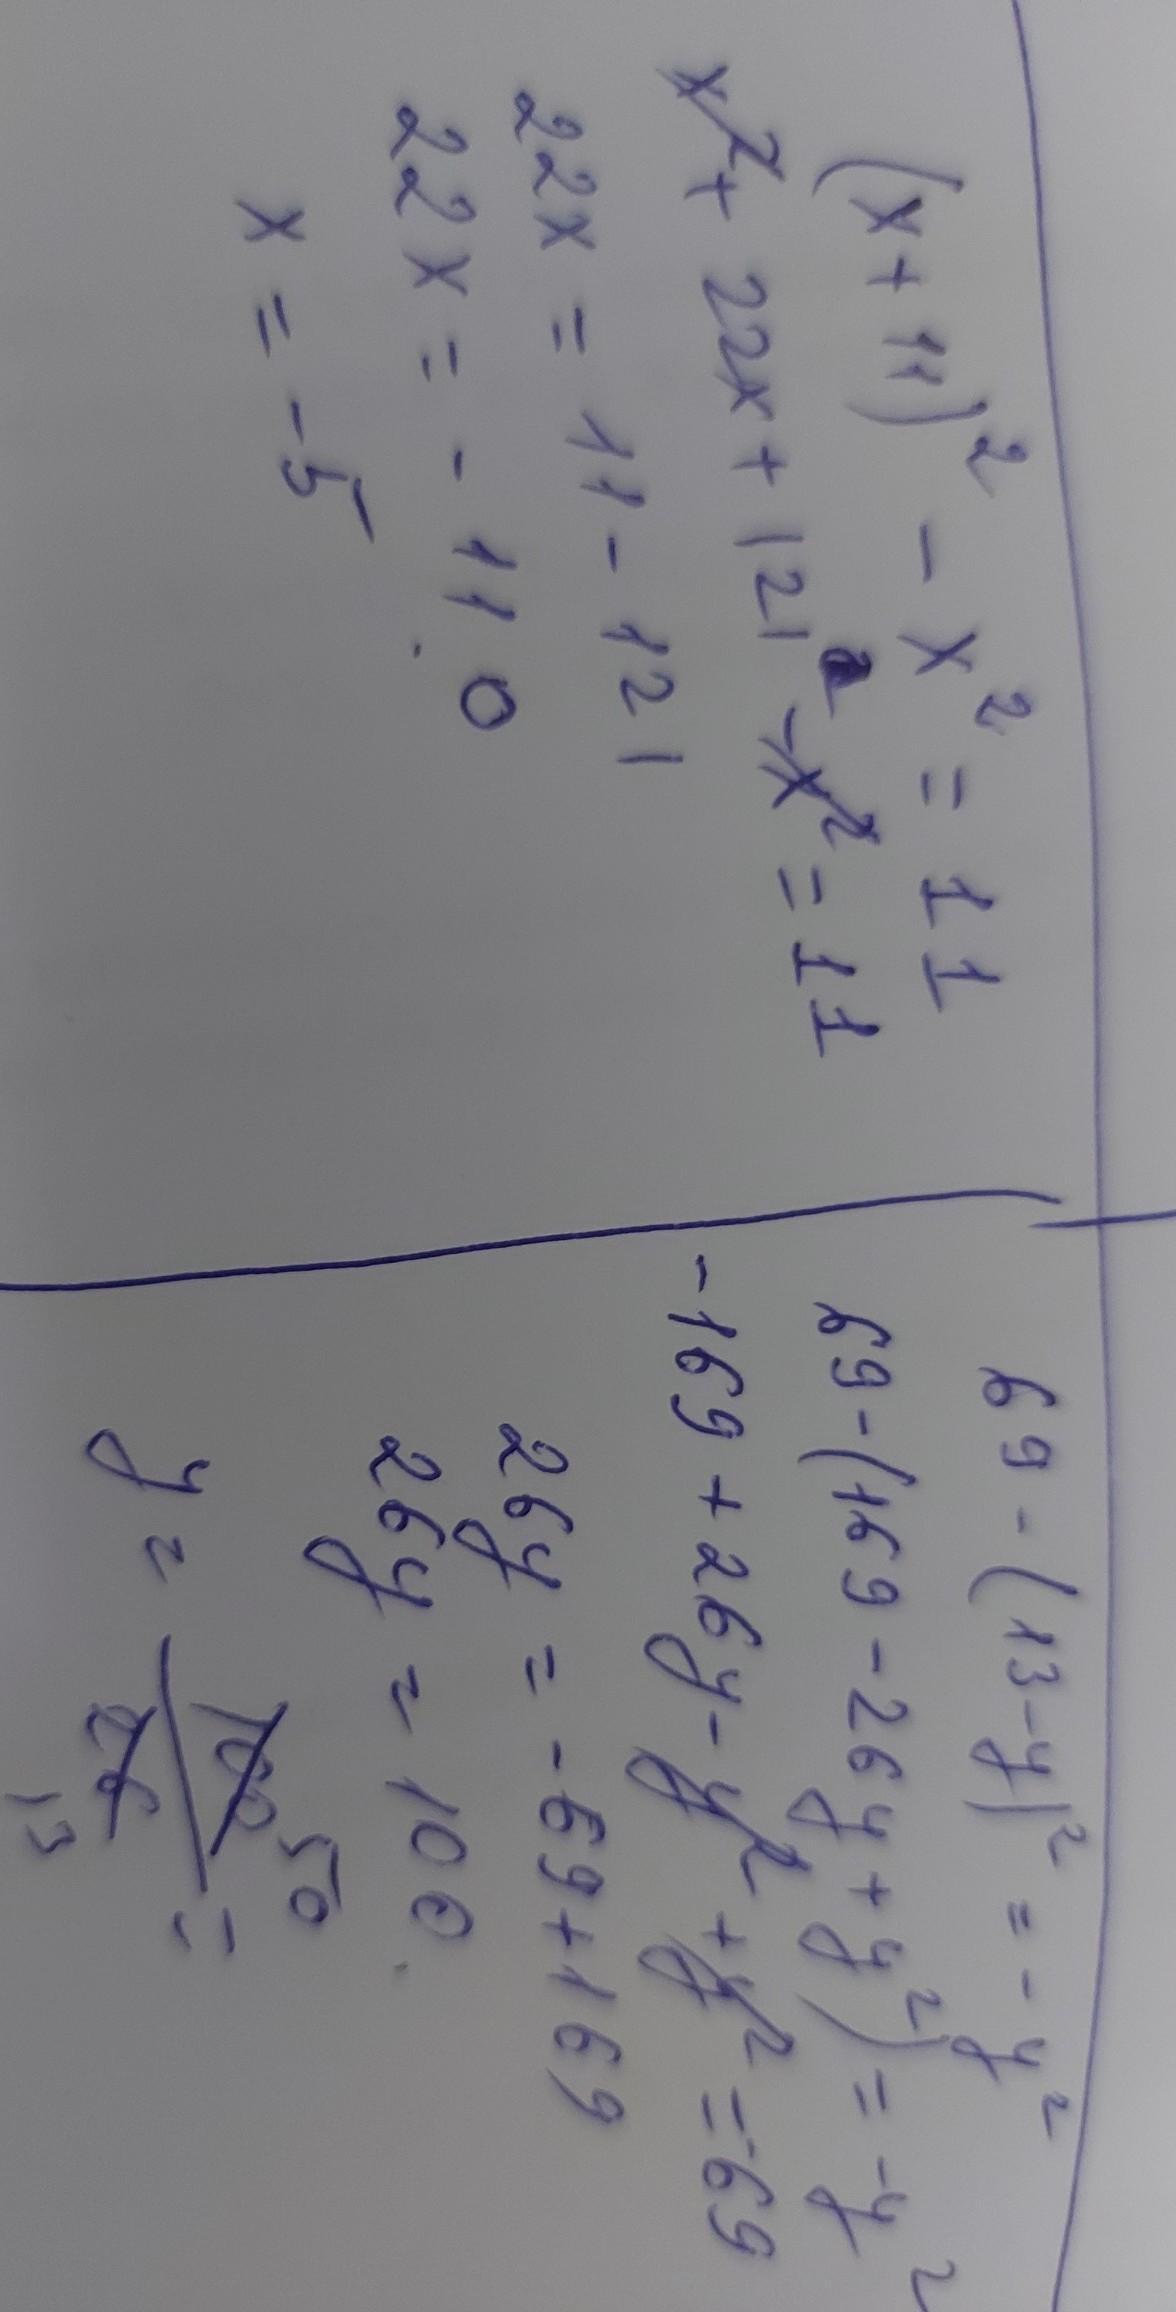 (x + 11)² - x² = 11
x² + 22x + 121 - x² = 11
22x = 11 - 121
22x = - 110
x = -5
69 - (13-y)² = - y²
69 - (169 - 26y + y²) = - y²
-169 + 26y - y² + y² = -69
26y = -69 + 169
26y = 100.
y = 100 50 / 26 13 =